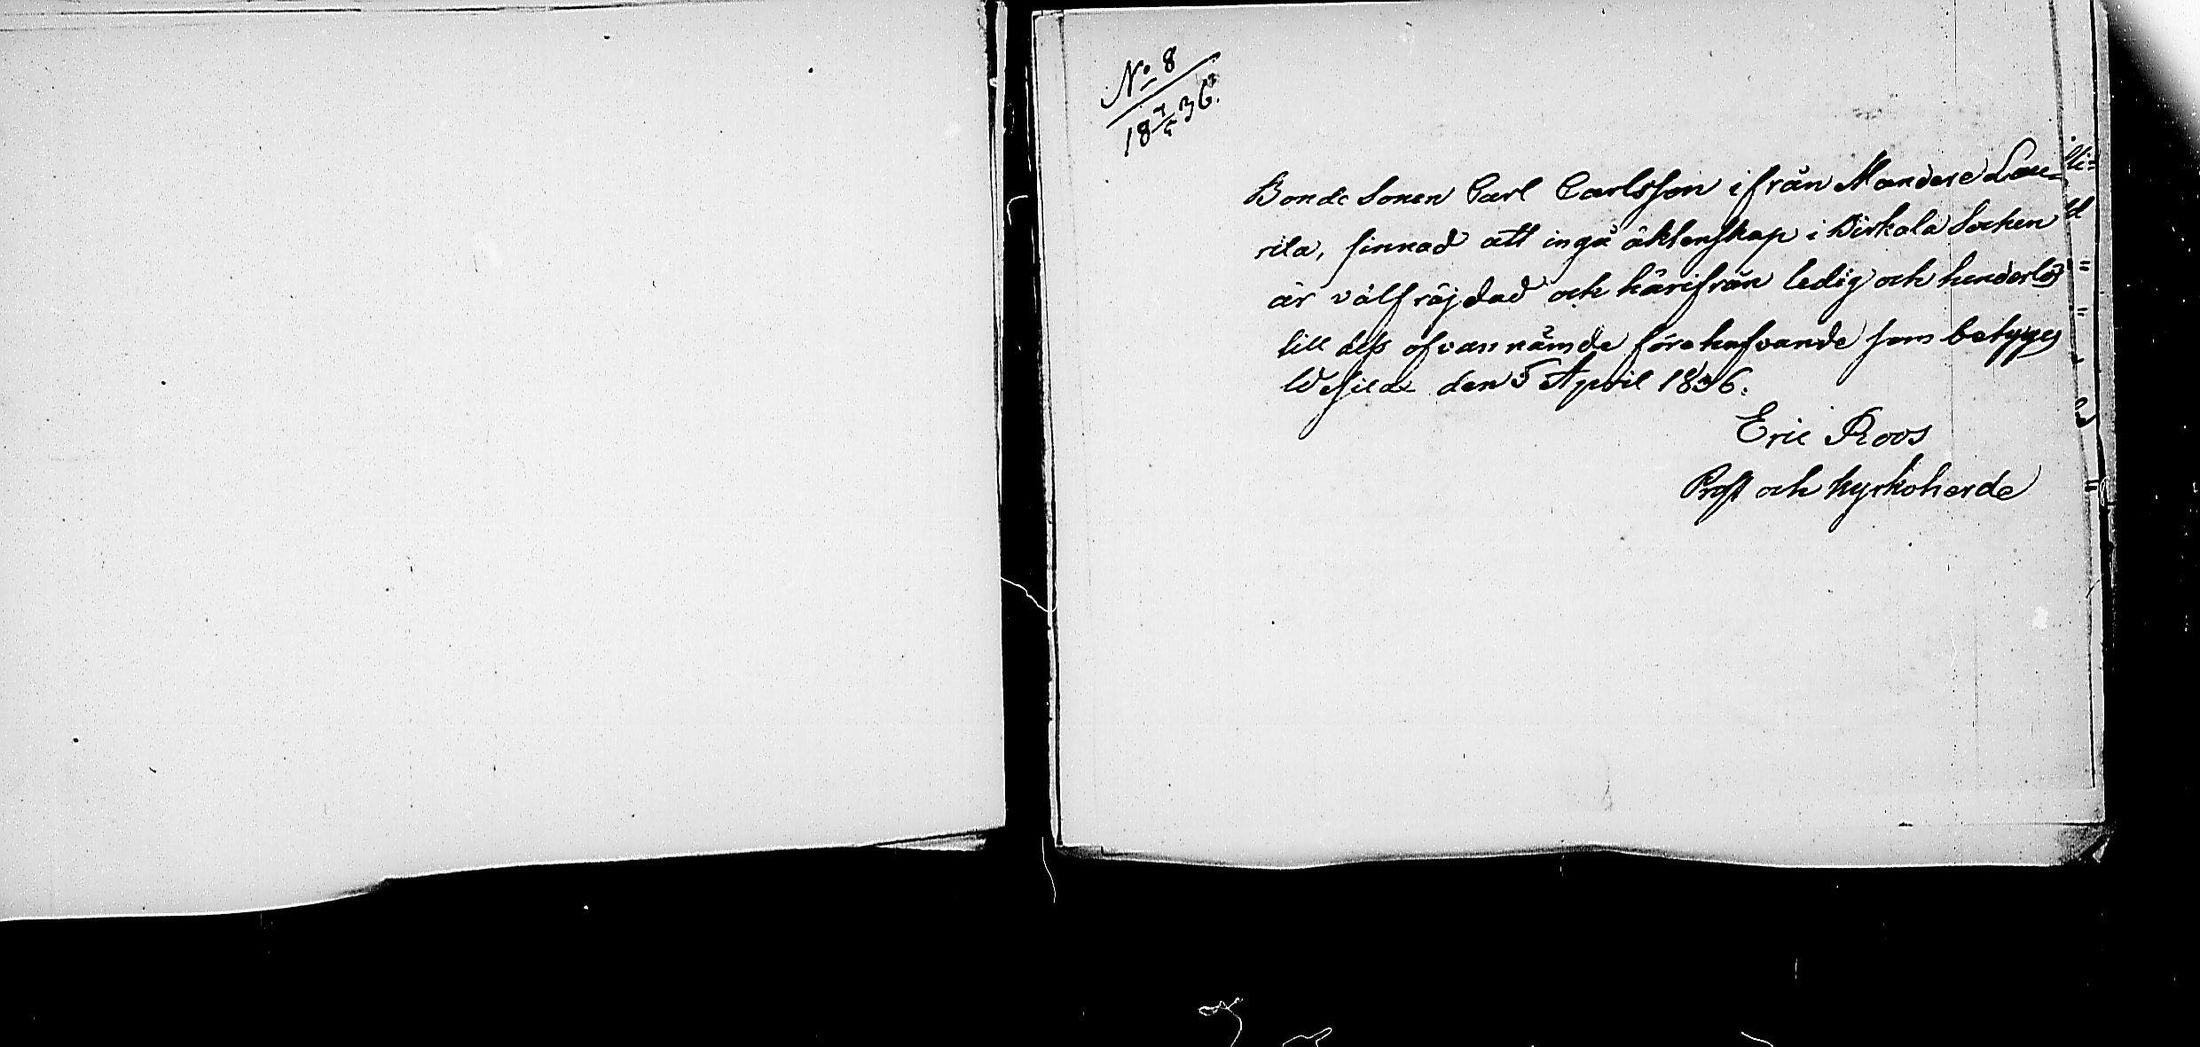 No 8
18 7/5 36.
Bonde Sonen Carl Carlsson ifrån Mandere Lau=
rila, sinnad att ingå äktenskap i Birkala Socken
är välfräjdad och härifrån ledig och hinderlös
till dess ofvannämde förehafvande som betyges
Wesilax den 5 April 1836.
Eric Roos
Prost och kyrkoherde